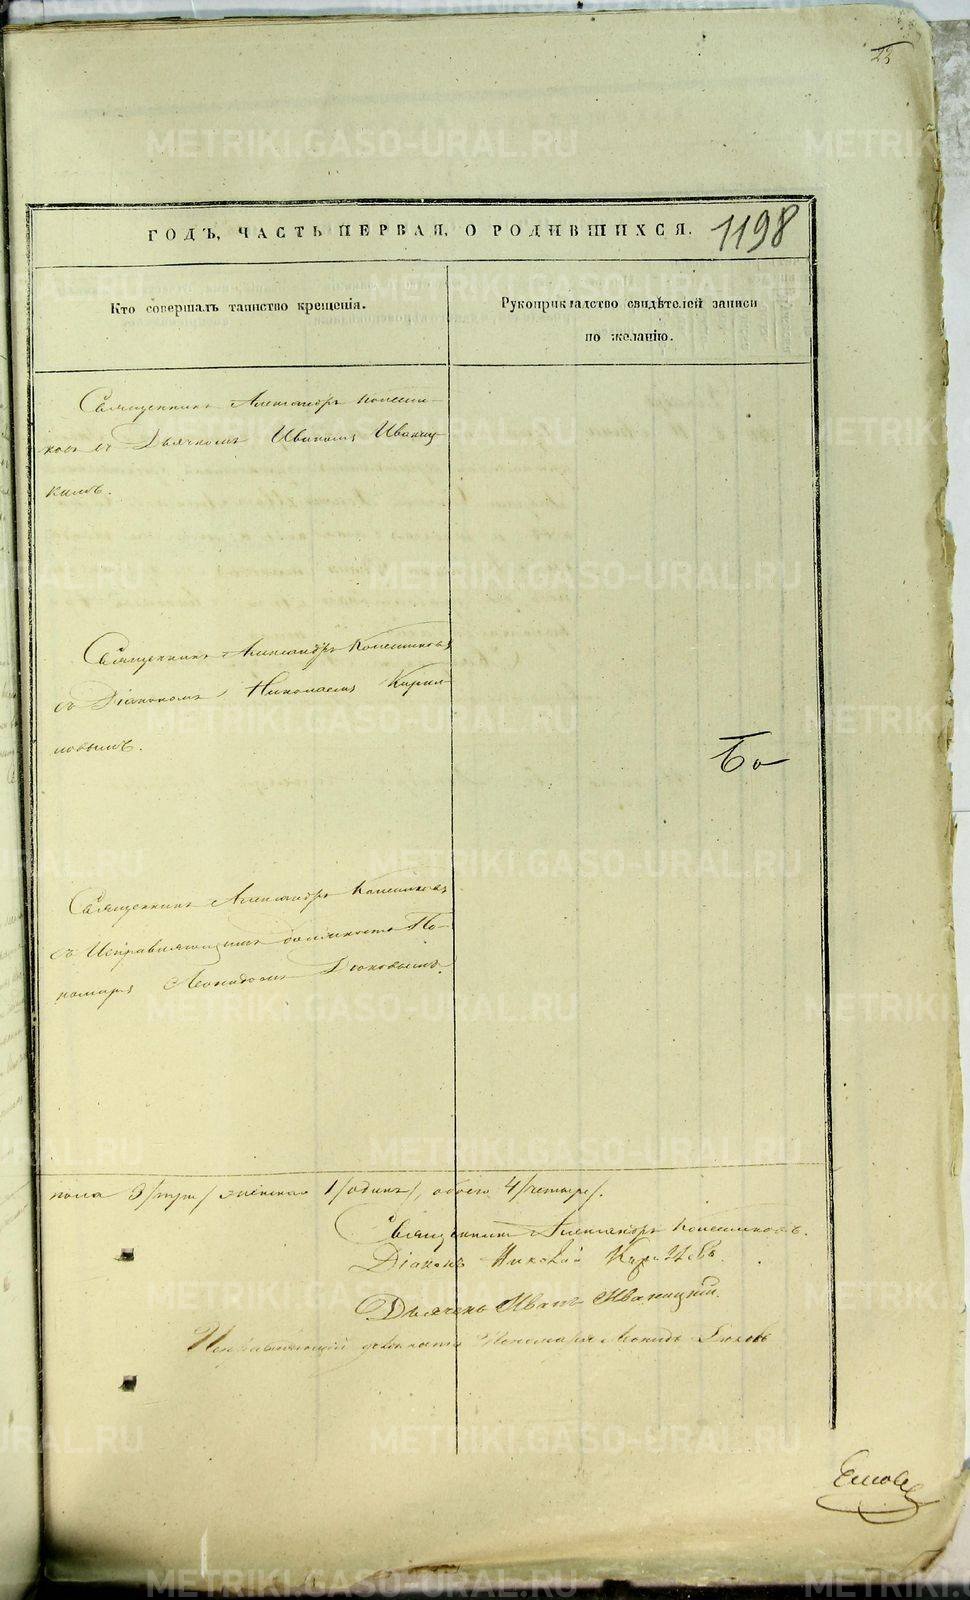 22
ГОДЪ, ЧАСТЬ ПЕРВАЯ, О РОДИВШИХСЯ.
1198
Кто совершалъ таинство крещенія.
Рукоприкладство свидѣтелей записи
по желанію.
Священникъ Александръ Конешни-
ковъ съ Дьячкомъ Иваномъ Иваниц-
кимъ.
Священникъ Александръ Конешниковъ
съ Діакономъ Николаемъ Кирил-
ловымъ.
Бо
Священникъ Александръ Конешниковъ
съ Исправляющимъ должность По-
номаря Леонидомъ
пола 3/три/ женска 1/одинъ/, обоего 4/четыре/.
Священникъ Александръ Конешниковъ.
Діаконъ Николай
Дьячекъ Иванъ Иваницкій.
Исправляющій должность Пономаря Леонидъ
METRIKI.GASO-URAL.RU